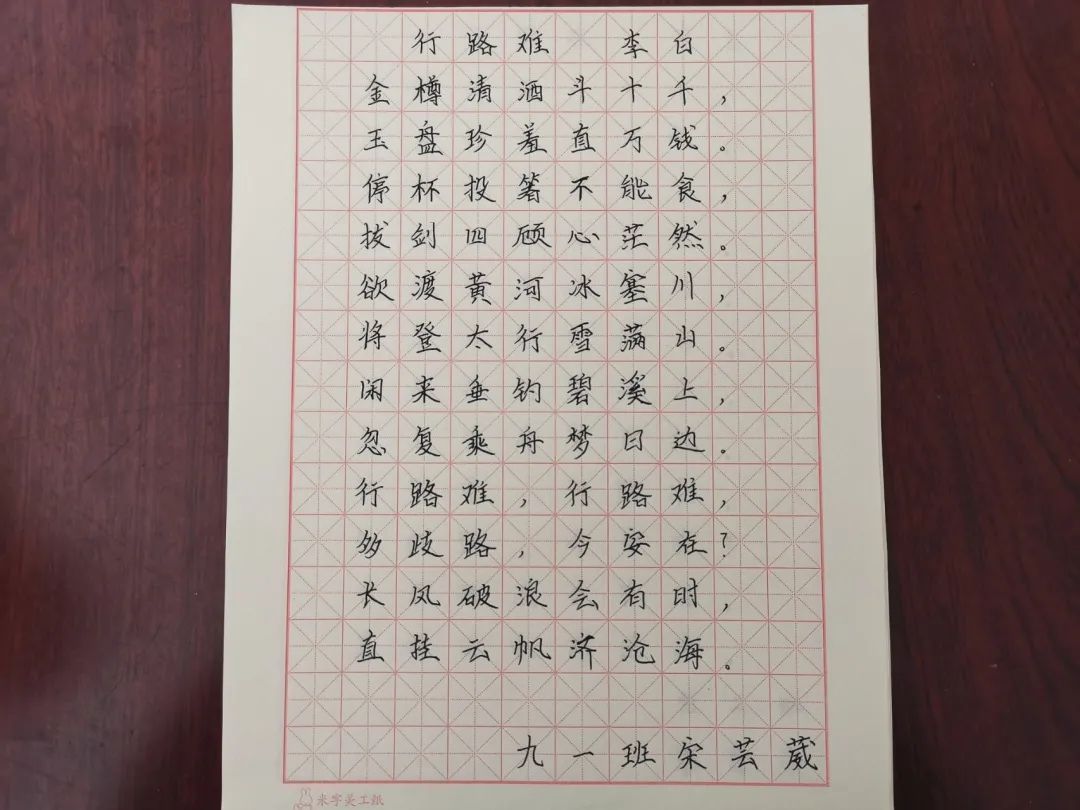 行路难 李白
金樽清酒斗十千，
玉盘珍羞直万钱。
停杯投箸不能食，
拔剑四顾心茫然。
欲渡黄河冰塞川，
将登太行雪满山。
闲来垂钓碧溪上，
忽复乘舟梦日边。
行路难，行路难，
多歧路，今安在？
长风破浪会有时，
直挂云帆济沧海。
九一班宋芸葳
米字美工纸